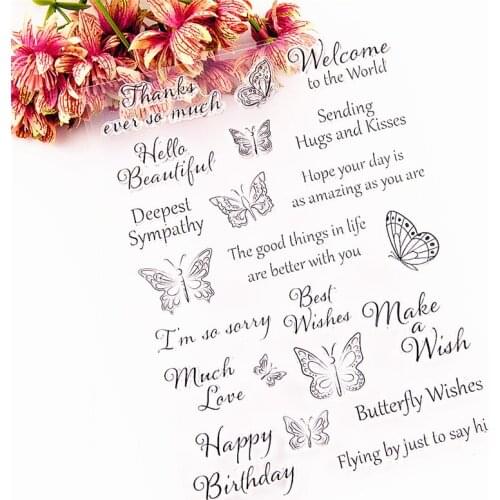 Thanks
ever so much
Welcome
to the World
Hello
Beautiful
Sending
Hugs and Kisses
Deepest
Sympathy
Hope your day is
as amazing as you are
The good things in life
are better with you
I'm so sorry
Best
Wishes
Make
a
Wish
Much
Love
Butterfly Wishes
Happy
Birthday
Flying by just to say hi